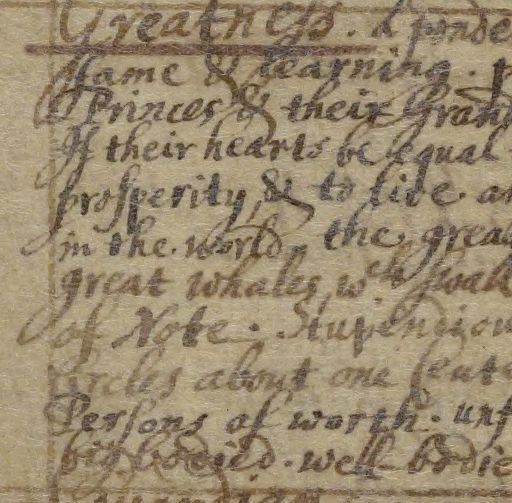 Greatness. &
fame & learning.
Princes & their Grand
If their hearts be equal
prosperity, & to live
in the world. the great
great whales, wch swall
of Note. Stupendiou
circles about one
Persons of worth. unf
big bodied. well bodie